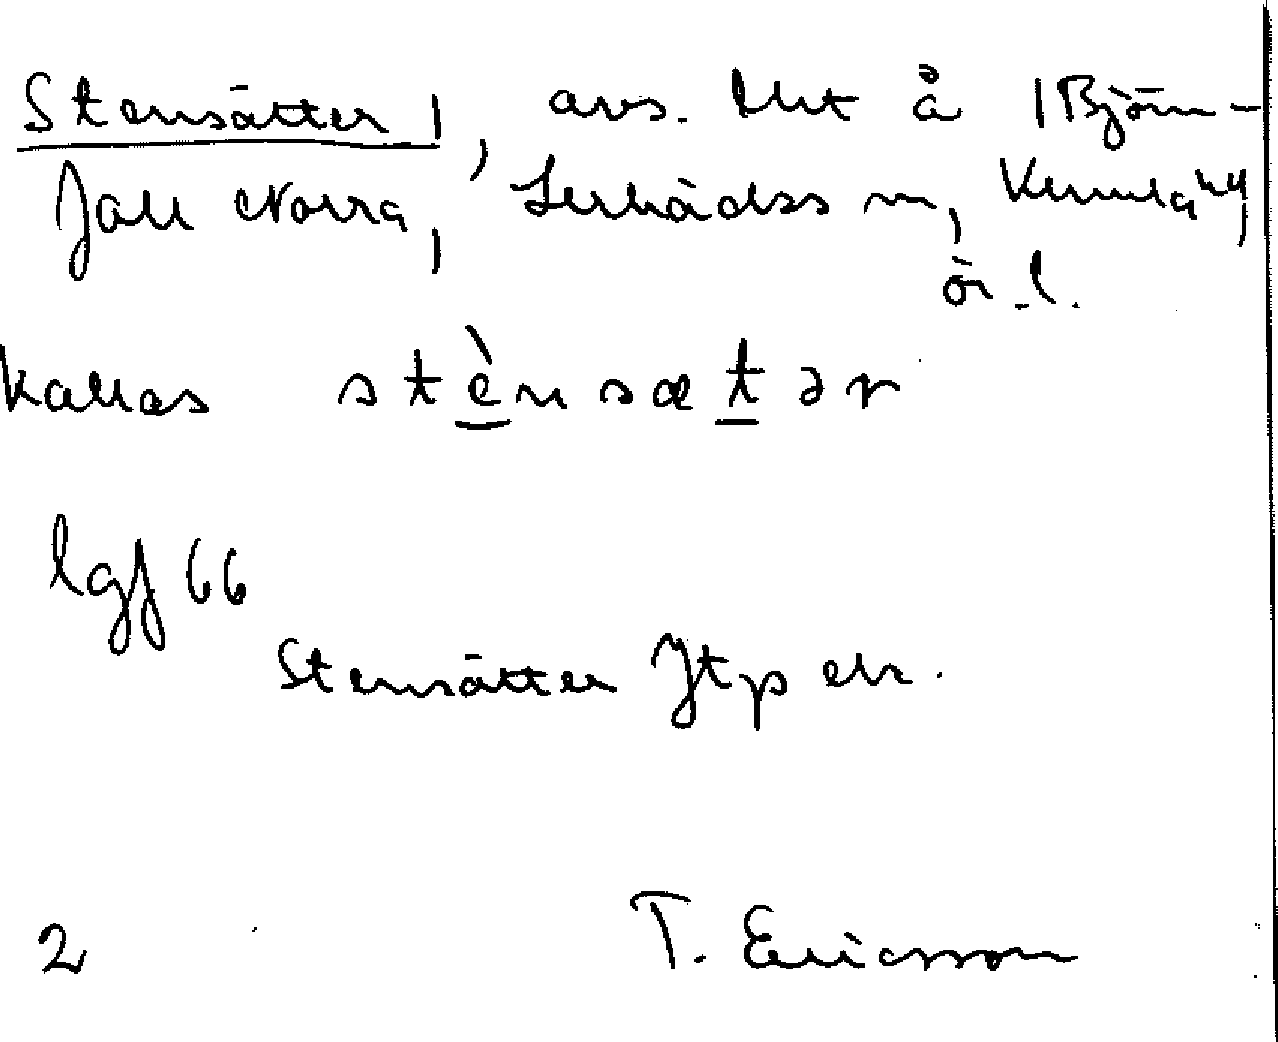 Stensätter, avs. lht å Björn-
fall Norra, Lerbäcks sn, Kumla hd,
ör. l.
kallas stènsætər
lgf 66
Stensätter Jtp ek.
2 T. Ericsson